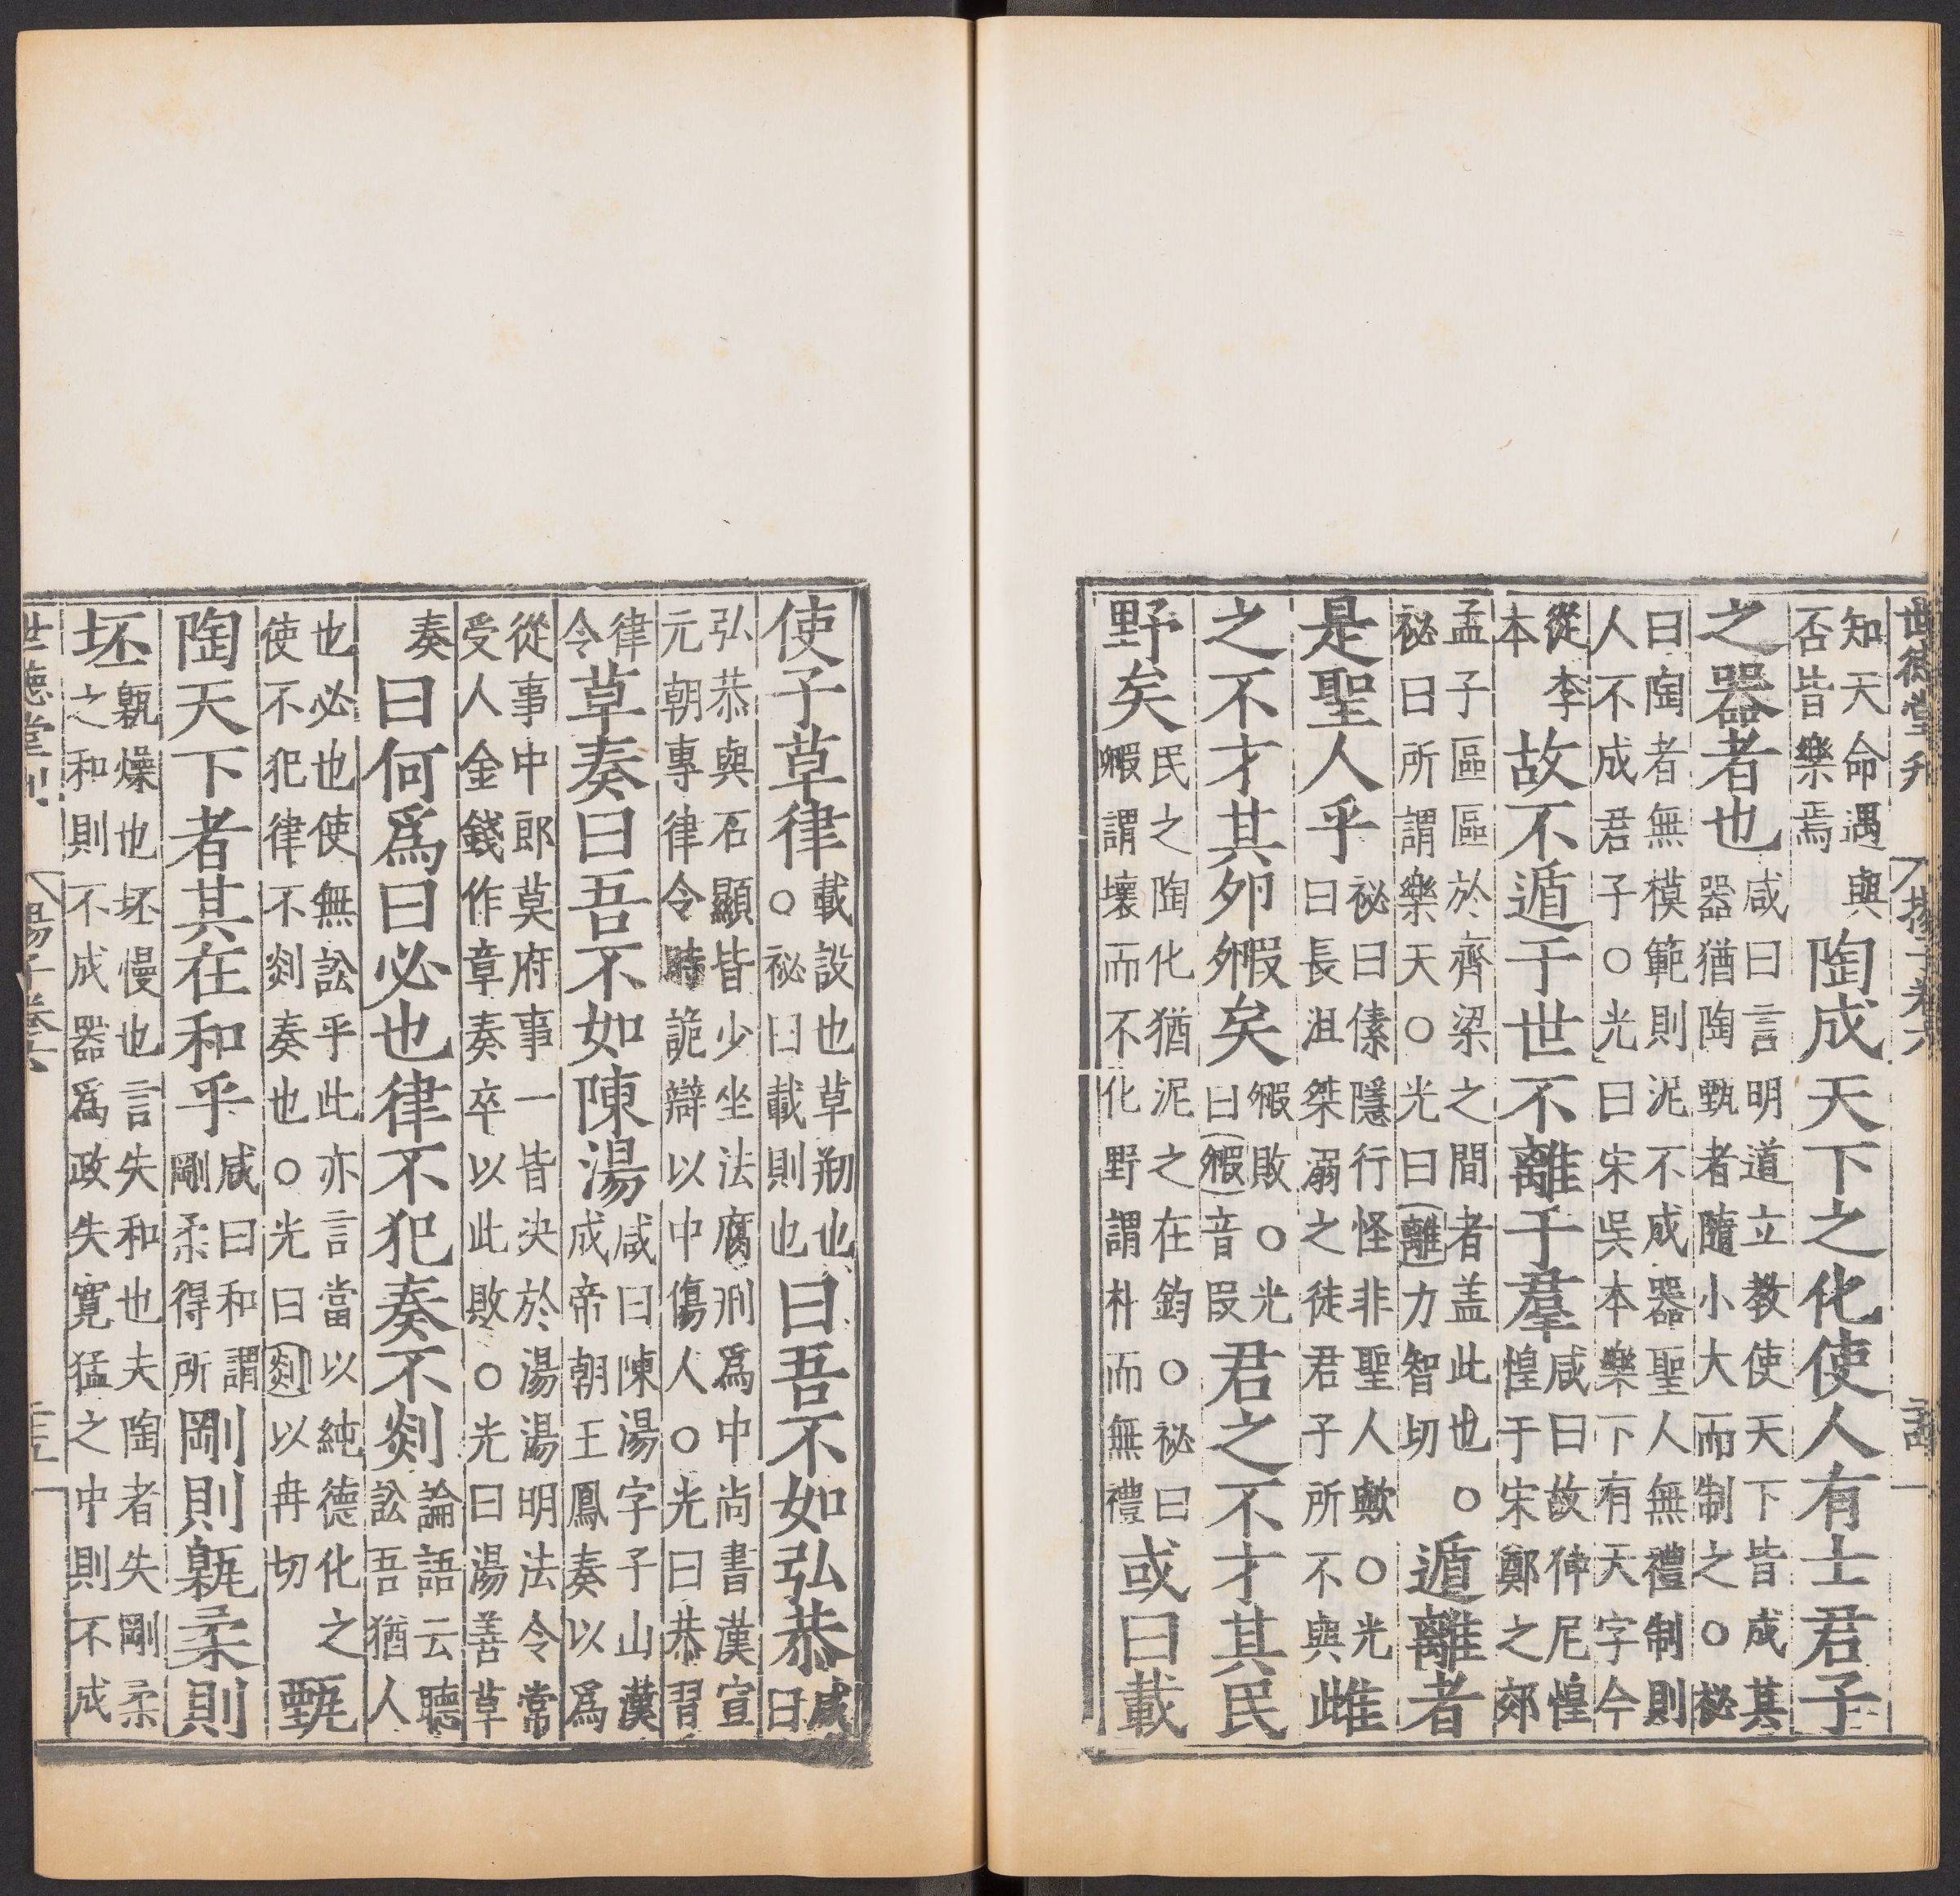 世德堂刊 揚子卷六
知天命遇與否皆樂焉陶成天下之化使人有士君子
之器者也咸曰言明道立教使天下皆成其器猶陶甄者隨小大而制之○祕
曰陶者無模範則泥不成器聖人無禮制則人不成君子○光曰宋吳本樂下有天字今
從李本故不遁于世不離于羣咸曰故仲尼惶惶于宋鄭之郊
孟子區區於齊梁之間者盖此也○祕曰所謂樂天○光曰離力智切遁離者
是聖人乎祕曰傃隱行怪非聖人歟○光曰長沮桀溺之徒君子所不與雌
之不才其卵毈矣毈敗○光曰毈音段君之不才其民
野矣民之陶化猶泥之在鈞○祕曰毈謂壞而不化野謂朴而無禮或曰載
使子草律載設也草刱也○祕曰載則也曰吾不如弘恭咸曰
弘恭與石顯皆少坐法腐刑爲中尚書漢宣元朝專律令時詭辯以中傷人○光曰恭習
律令草奏曰吾不如陳湯咸曰陳湯字子山漢成帝朝王鳳奏以爲
從事中郎莫府事一皆決於湯湯明法令常受人金錢作章奏卒以此敗○光曰湯善草
奏曰何爲曰必也律不犯奏不剡論語云聽訟吾猶人
也必也使無訟乎此亦言當以純德化之使不犯律不剡奏也○光曰剡以冉切甄
陶天下者其在和乎咸曰和謂剛柔得所剛則甈柔則
坯甈燥也坯慢也言失和也夫陶者失剛柔之和則不成器爲政失寬猛之中則不成
世德堂刊 揚子卷六